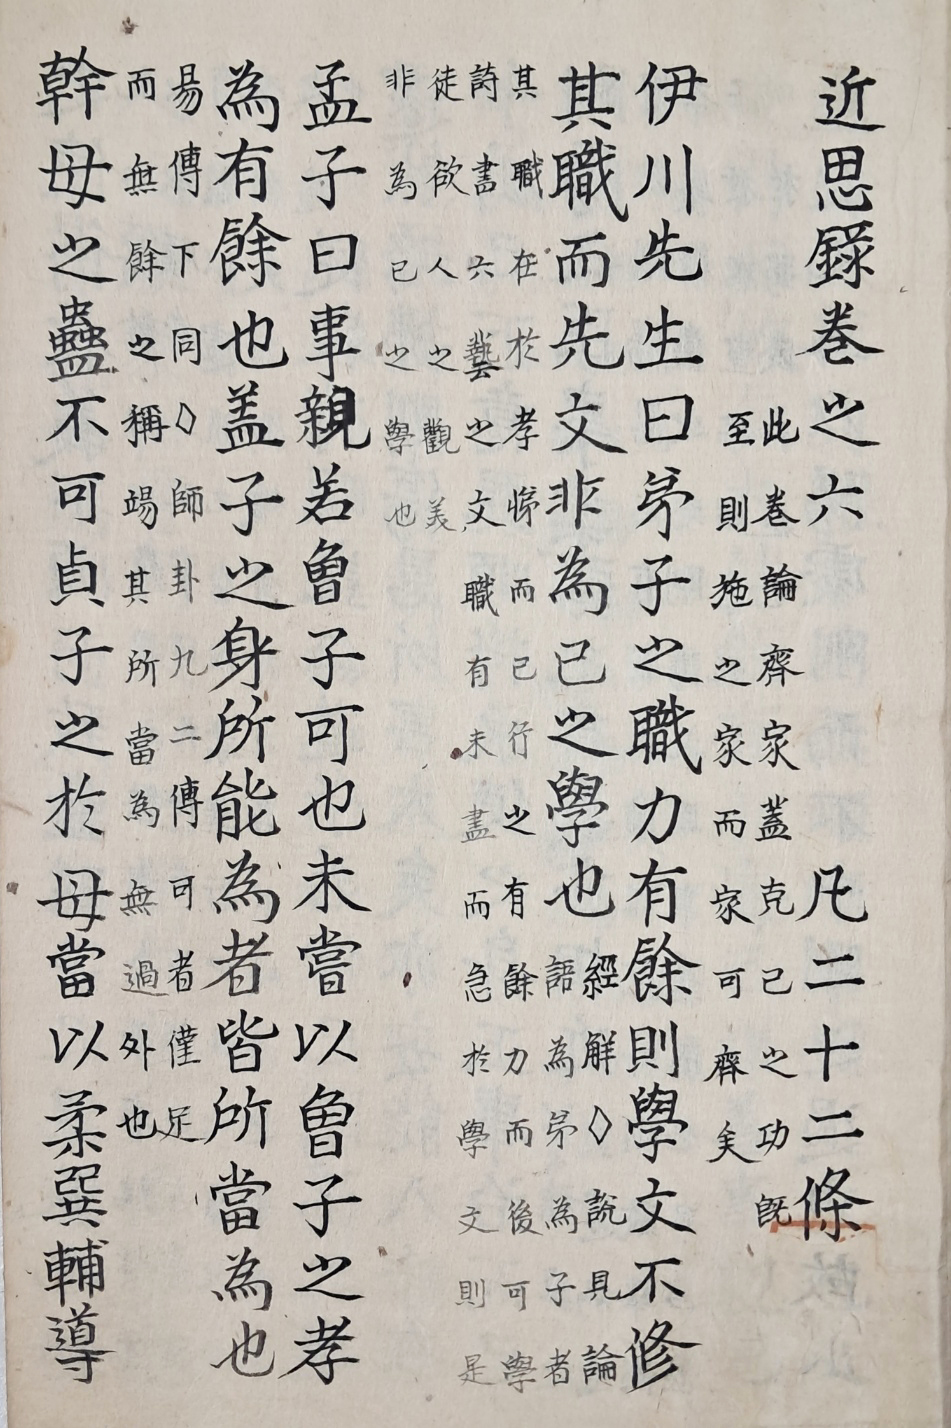 近思錄卷之六 凡二十二條
此卷論齊家蓋克己之功旣
至則施之家而家可齊矣
伊川先生曰弟子之職力有餘則學文不修
其職而先文非為己之學也
經解◇說見論
語為弟為子者
其職在於孝悌而已行之有餘力而後可學
詩書六藝之文職有未盡而急於學文則是
徒欲人之觀美
非為己之學也
孟子曰事親若曾子可也未嘗以曾子之孝
為有餘也盖子之身所能為者皆所當為也
易傳下同◇師卦九二傳可者僅足
而無餘之稱竭其所當為無過外也
幹母之蠱不可貞子之於母當以柔巽輔導